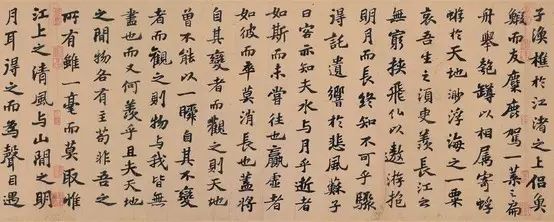 子漁樵於江渚之上侶魚
鰕而友麋鹿駕一葉扁
舟舉匏罇以相属寄蜉
蝣於天地渺浮海之一粟
哀吾生之須臾羨長江之
無窮挾飛仙以遨游抱
明月而長終知不可乎驟
得託遺響於悲風蘇子
曰客亦知夫水與月乎逝者
如斯而未嘗往也贏虛者
如彼而卒莫消長也蓋將
自其變者而觀之則天地
曾不能以一瞬自其不變
者而觀之則物與我皆無
盡也而又何羨乎且夫天地
之間物各有主苟非吾之
所有雖一毫而莫取惟
江上之清風與山間之明
月耳得之而為聲目遇